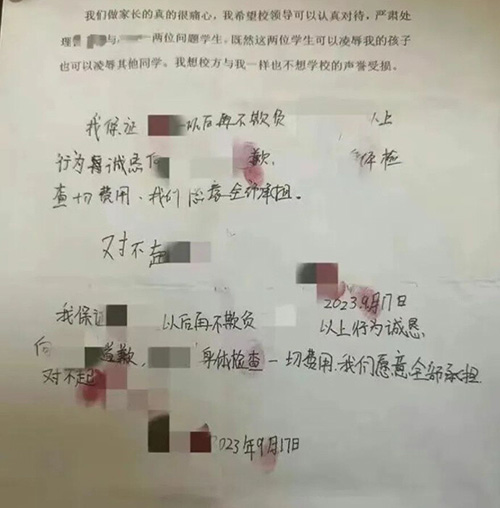 我们做家长的真的很痛心，我希望校领导可以认真对待，严肃处
理曾 与 两位问题学生，既然这两位学生可以凌辱我的孩子
也可以凌辱其他同学。我想校方与我一样也不想学校的声誉受损。
我保证 以后再不欺负 以上
行为 诚恳向 歉， 体检
查一切费用、我们愿意全部承担。
对不起
2023.9月17日
我保证 以后再不欺负 以上行为诚恳
向 道歉， 身体检查一切费用.我们愿意全部承担.
对不起
2023年9月17日